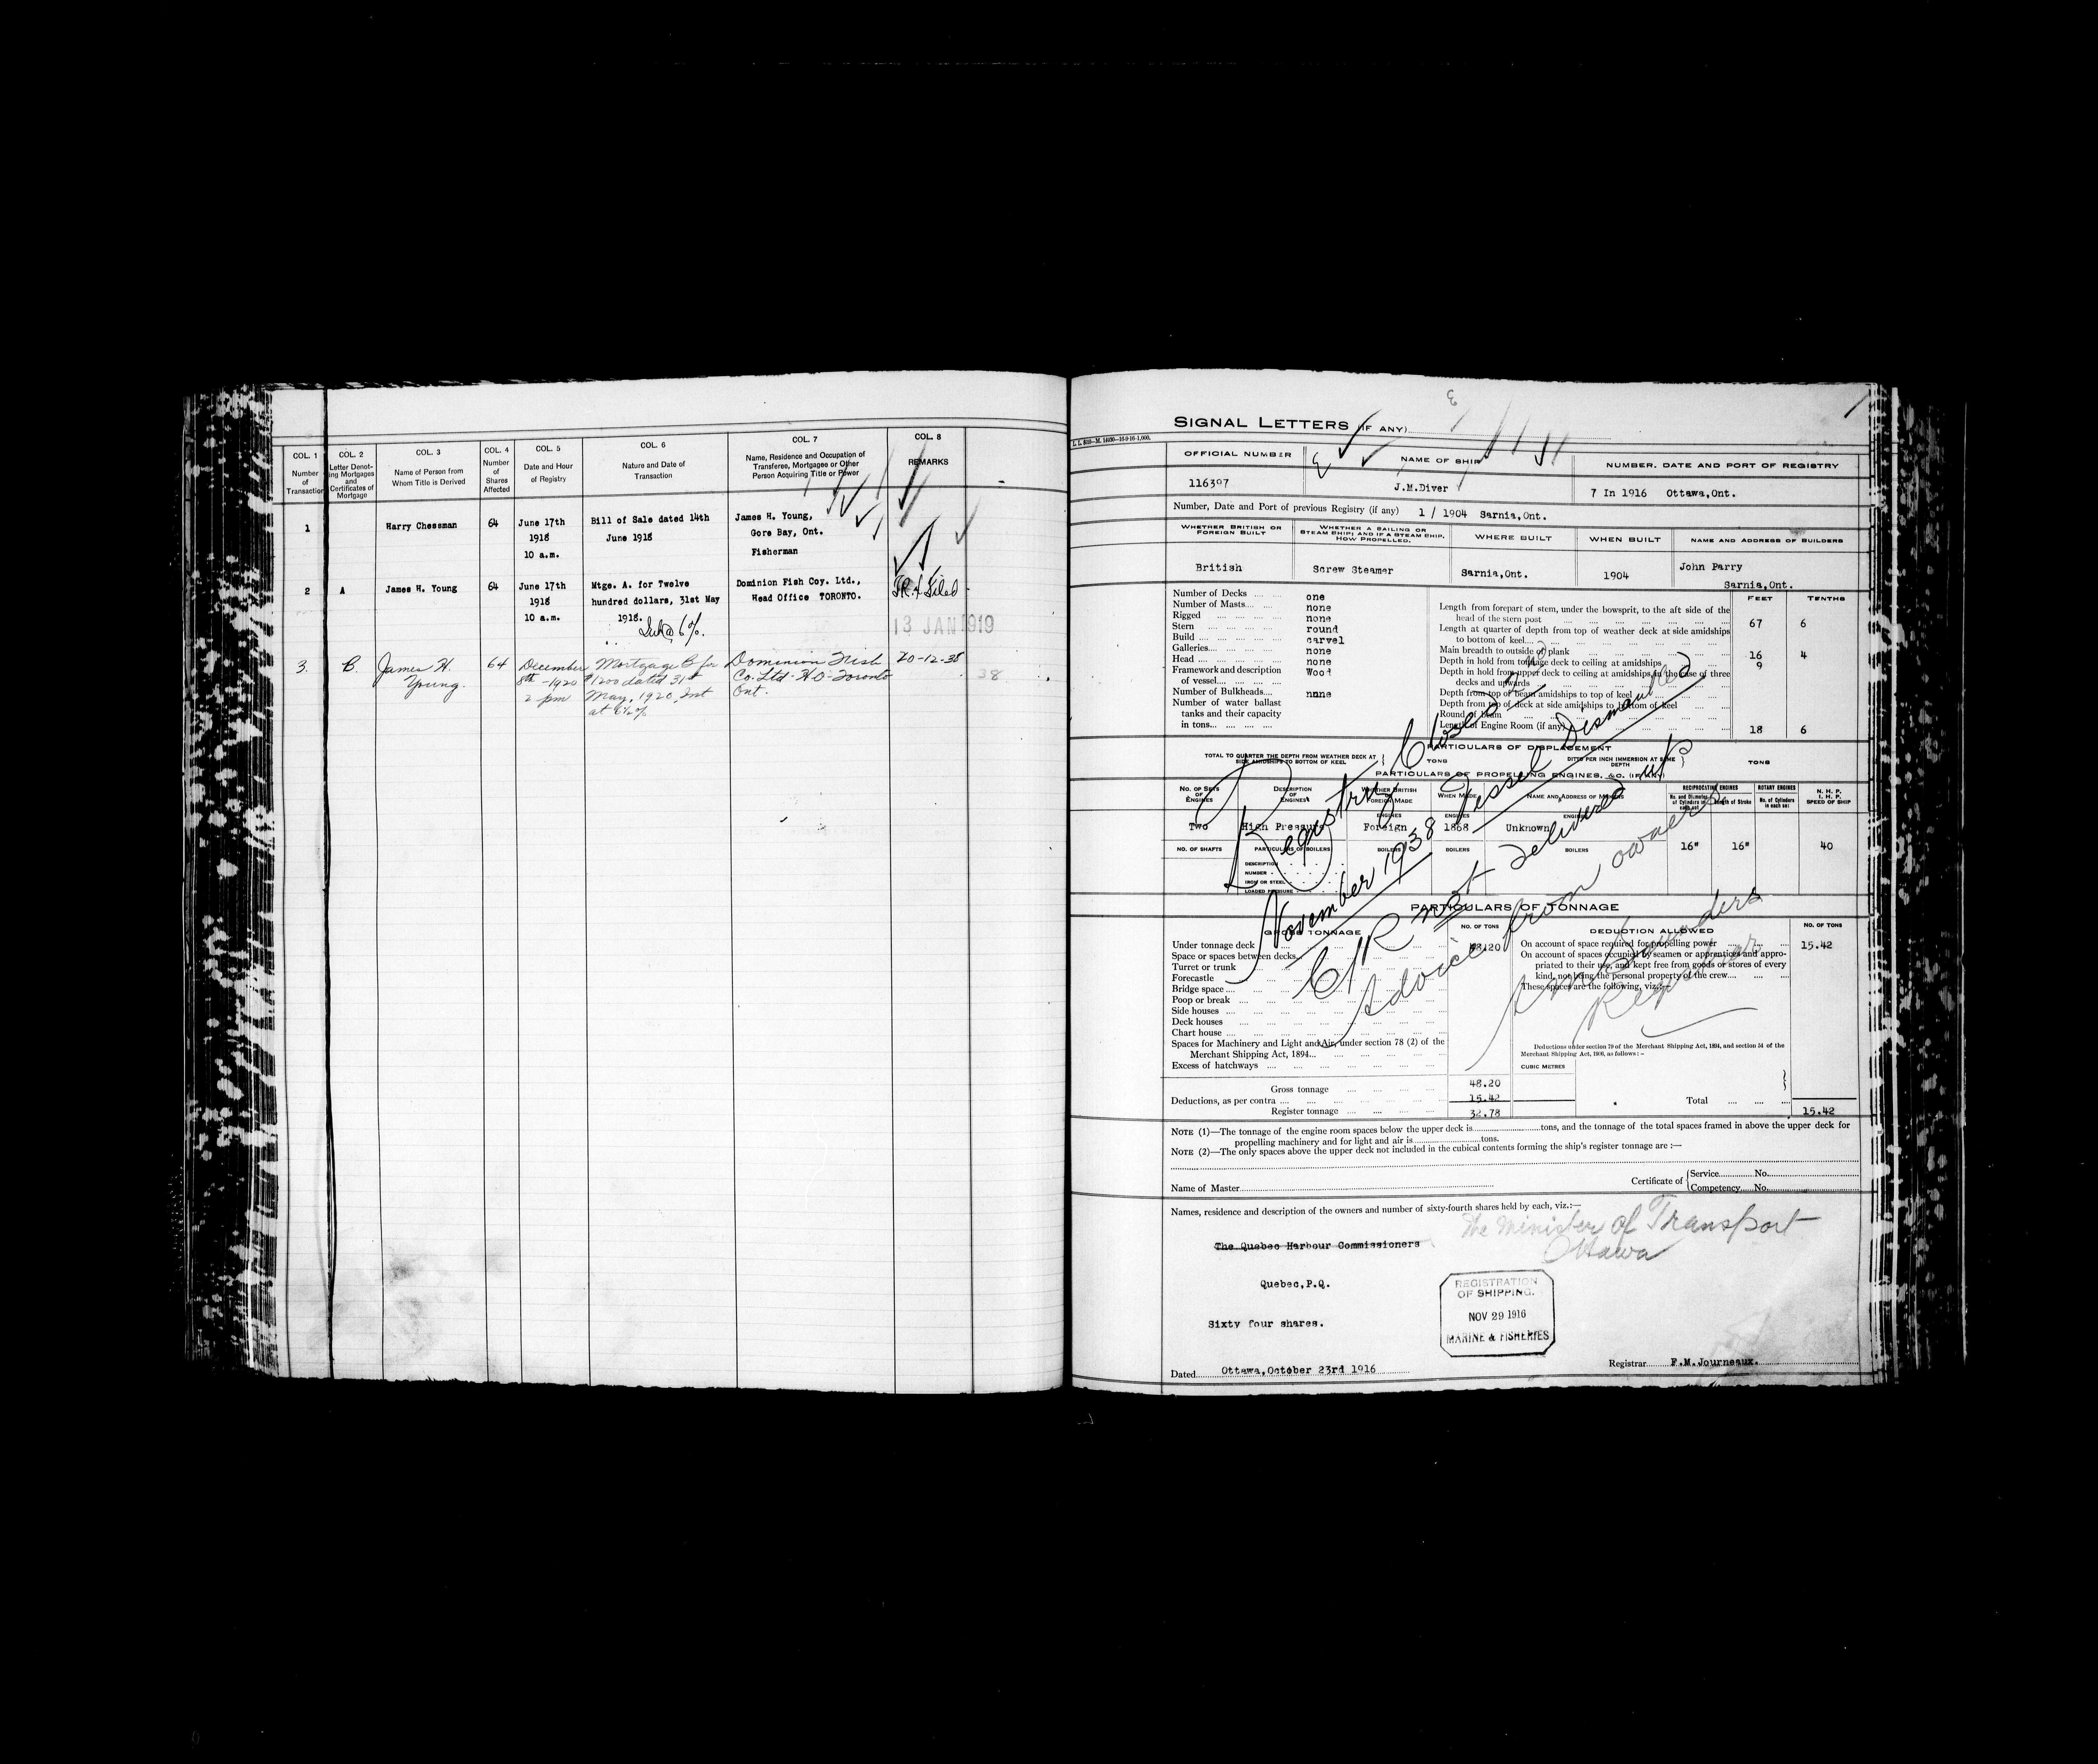 COL. 1
Number
of
Transaction
COL. 2
Letter Denot-
ing Mortgages
and
Certificates of
Mortgage
COL. 3
Name of Person from
Whom Title is Derived
COL. 4
Number
of
Shares
Affected
COL. 5
Date and Hour
of Registry
COL. 6
Nature and Date of
Transaction
COL. 7
Name, Residence and Occupation of
Transferee, Mortgagee or Other
Person Acquiring Title or Power
COL. 8
REMARKS
1 Harry Chessman 64 June 17th Bill of Sale dated 14th James H. Young,
1918 June 1918 Gore Bay, Ont.
10 a.m. Fisherman
2 A James H. Young 64 June 17th Mtge. A. for Twelve Dominion Fish Coy. Ltd.,
1918 hundred dollars, 31st May Head Office TORONTO. Filed
10 a.m. 1918.
Int @ 6%.
13 JAN 1919
3. B. James H. 64 December Mortgage B for Dominion Fish 20-12-38
Young. 8th - 1920 $1200 dated 31st Co. Ltd. H.O. Toronto 38
2 pm May, 1920. Int Ont.
at 6½%
SIGNAL LETTERS (IF ANY)
L. L. 8010-M. 14930-16-9-16-1,000.
OFFICIAL NUMBER NAME OF SHIP NUMBER, DATE AND PORT OF REGISTRY
116397 J.M.Diver 7 In 1916 Ottawa,Ont.
Number, Date and Port of previous Registry (if any) 1 / 1904 Sarnia,Ont.
WHETHER BRITISH OR
FOREIGN BUILT
WHETHER A SAILING OR
STEAM SHIP; AND IF A STEAM SHIP,
HOW PROPELLED.
WHERE BUILT WHEN BUILT NAME AND ADDRESS OF BUILDERS
British Screw Steamer Sarnia,Ont. 1904 John Parry
Sarnia,Ont.
Number of Decks one
Number of Masts none
Rigged none
Stern round
Build carvel
Galleries none
Head none
Framework and description
of vessel Wood
Number of Bulkheads none
Number of water ballast
tanks and their capacity
in tons
FEET TENTHS
Length from forepart of stem, under the bowsprit, to the aft side of the
head of the stern post 67 6
Length at quarter of depth from top of weather deck at side amidships
to bottom of keel
Main breadth to outside of plank 16 4
Depth in hold from tonnage deck to ceiling at amidships 9
Depth in hold from upper deck to ceiling at amidships, in the case of three
decks and upwards
Depth from top of beam amidships to top of keel
Depth from top of deck at side amidships to bottom of keel
Round of beam
Length of Engine Room (if any) 18 6
PARTICULARS OF DISPLACEMENT
TOTAL TO QUARTER THE DEPTH FROM WEATHER DECK AT
SIDE AMIDSHIPS TO BOTTOM OF KEEL
TONS
DITTO PER INCH IMMERSION AT SAME
DEPTH
TONS
PARTICULARS OF PROPELLING ENGINES, &C. (IF ANY)
NO. OF SETS
OF
ENGINES
DESCRIPTION
OF
ENGINES
WHETHER BRITISH
FOREIGN MADE
WHEN MADE
NAME AND ADDRESS OF MAKERS
RECIPROCATING ENGINES
No. and Diameter
of Cylinders in
each set
Length of Stroke
ROTARY ENGINES
No. of Cylinders
in each set
N. H. P.
I. H. P.
SPEED OF SHIP
ENGINES ENGINES ENGINES
Two High Pressure Foreign 1868 Unknown 16" 16" 40
NO. OF SHAFTS PARTICULARS OF BOILERS BOILERS BOILERS BOILERS
DESCRIPTION
NUMBER
IRON OR STEEL
LOADED PRESSURE
Registry Closed
November 1938 Vessel Dismantled
C/R not delivered up
Advice from owners
Registrar
PARTICULARS OF TONNAGE
GROSS TONNAGE NO. OF TONS
Under tonnage deck 48.20
Space or spaces between decks
Turret or trunk
Forecastle
Bridge space
Poop or break
Side houses
Deck houses
Chart house
Spaces for Machinery and Light and Air, under section 78 (2) of the
Merchant Shipping Act, 1894
Excess of hatchways
Gross tonnage 48.20
Deductions, as per contra 15.42
Register tonnage 32.78
DEDUCTION ALLOWED NO. OF TONS
On account of space required for propelling power 15.42
On account of spaces occupied by seamen or apprentices and appro-
priated to their use, and kept free from goods or stores of every
kind, not being the personal property of the crew
These spaces are the following, viz.:—
Deductions under section 79 of the Merchant Shipping Act, 1894, and section 54 of the
Merchant Shipping Act, 1906, as follows:—
CUBIC METRES
Total 15.42
NOTE (1)—The tonnage of the engine room spaces below the upper deck is tons, and the tonnage of the total spaces framed in above the upper deck for
propelling machinery and for light and air is tons.
NOTE (2)—The only spaces above the upper deck not included in the cubical contents forming the ship's register tonnage are :—
Name of Master
Certificate of
Service No.
Competency No.
Names, residence and description of the owners and number of sixty-fourth shares held by each, viz.:—
The Minister of Transport
Ottawa
The Quebec Harbour Commissioners
Quebec,P.Q.
Sixty four shares.
REGISTRATION
OF SHIPPING.
NOV 29 1916
MARINE & FISHERIES
Dated Ottawa,October 23rd 1916
Registrar F.M.Journeaux.